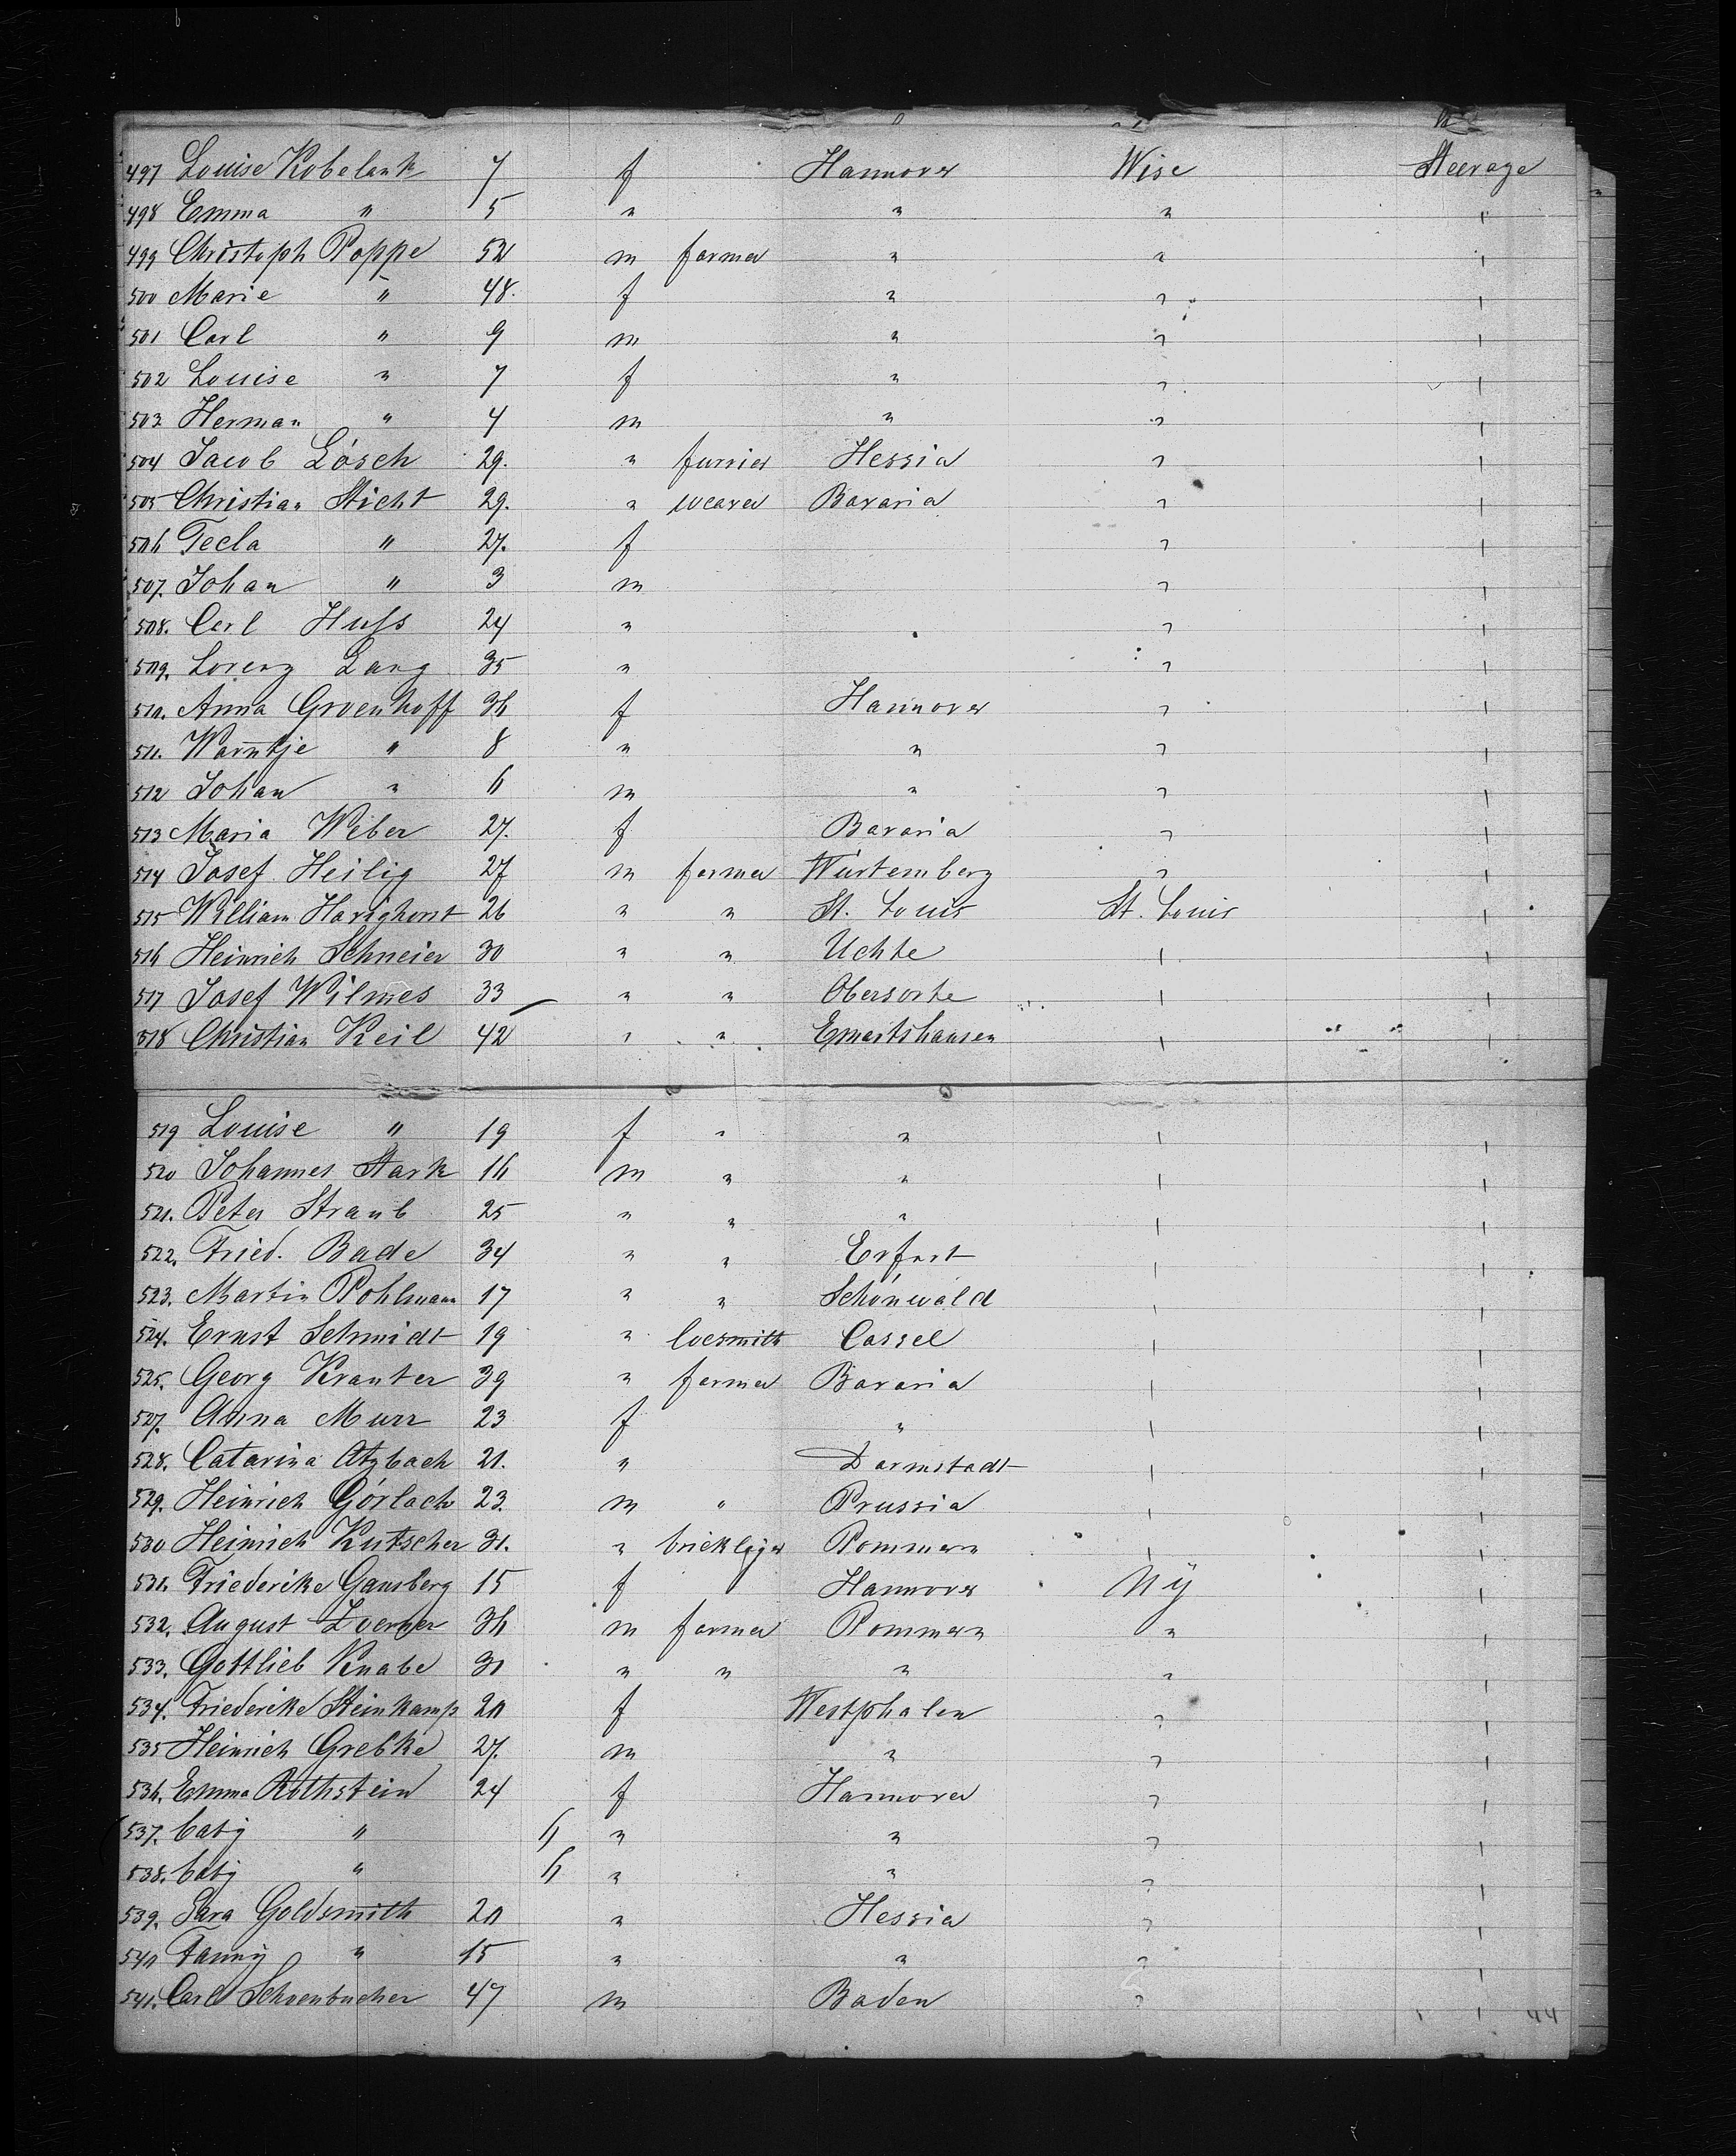 497 Louise Kobelank 7 f Hannover Wisc Steerage
498 Emma " 5 " " " "
499 Christoph Poppe 52 m farmer " " "
500 Marie " 48. f " " "
501 Carl " 9 m " " "
502 Louise " 7 f " " "
503 Herman " 4 m " " "
504 Jacob Lösch 29. " furrier Hessia " "
505 Christian Sticht 29. " weaver Bavaria " "
506 Tecla " 27. f " "
507. Johan " 3 m " "
508. Carl Huss 24 " " "
509. Lorenz Lang 35 " " "
510. Anna Groenhoff 36 f Hannover " "
511. Warntje " 8 " " " "
512 Johan " 6 m " " "
513 Maria Weber 27. f Bavaria " "
514 Josef Heilig 27 m farmer Würtemberg " "
515 William Harighorst 26 " " St. Louis St. Louis "
516 Heinrich Schneier 30 " " Uchte " "
517 Josef Wilmes 33 " " Obersorke " "
518 Christian Keil 42 " " Emartshausen " "
519 Louise " 19 f " " " "
520 Johannes Stark 16 m " " " "
521. Peter Straub 25 " " " " "
522. Fried. Bade 34 " " Erfurt " "
523. Martin Pohlmann 17 " " Schönwald " "
524. Ernst Schmidt 19 " locsmith Cassel " "
525. Georg Krauter 39 " farmer Bavaria " "
527. Anna Murr 23 f " " "
528. Catarina Atzbach 21. " Darmstadt " "
529. Heinrich Görlach 23. m " Prussia " "
530 Heinrich Kutscher 31. " bricklger Pommern " "
531. Friederike Gansberg 15 f Hannover NY "
532. August Zoerner 36 m farmer Pommern " "
533. Gottlieb Knabe 30 " " " " "
534. Friederike Steinkamp 20 f Westphalen " "
535 Heinrich Grebke 27. m " " "
536. Emma Rothstein 24 f Hannover " "
537. baby " 6 " " " "
538. baby " 6 " " " "
539. Sara Goldsmith 20 " Hessia " "
540 Fanny " 15 " " " "
541. Carl Schoenbucher 47 m Baden " "
44